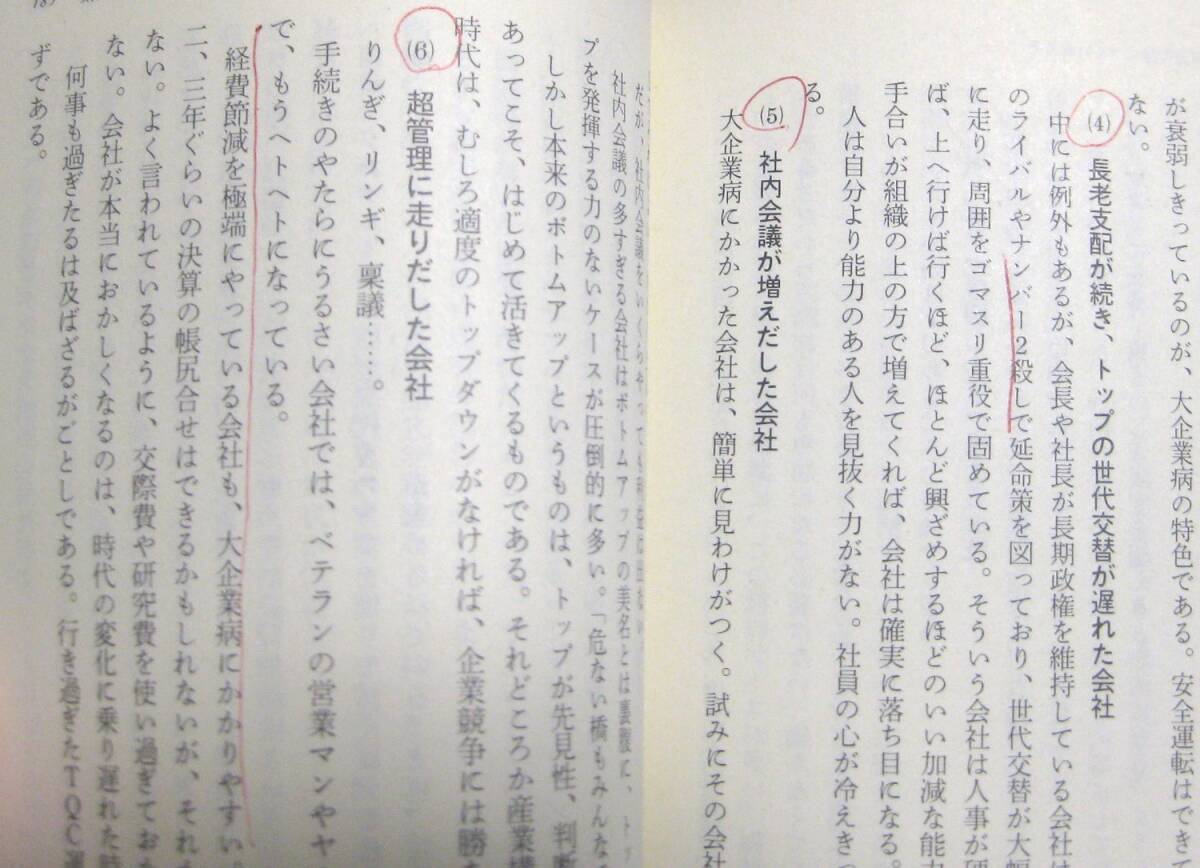 が衰弱しきっているのが、大企業病の特色である。安全運転はでき
ない。
(4) 長老支配が続き、トップの世代交替が遅れた会社
中には例外もあるが、会長や社長が長期政権を維持している会社
のライバルやナンバー2殺しで延命策を図っており、世代交替が大
に走り、周囲をゴマスリ重役で固めている。そういう会社は人事が
ば、上へ行けば行くほど、ほとんど興ざめするほどのいい加減な能
手合いが組織の上の方で増えてくれば、会社は確実に落ち目になる。
人は自分より能力のある人を見抜く力がない。社員の心が冷えき
る。
(5) 社内会議が増えだした会社
大企業病にかかった会社は、簡単に見わけがつく。試みにその会社
だが、社内会議をいくらやっても
社内会議の多すぎる会社はボトムアップの美名とは裏腹に、
プを発揮する力のないケースが圧倒的に多い。「危ない橋もみんな
しかし本来のボトムアップというものは、トップが先見性、判断
あってこそ、はじめて活きてくるものである。それどころか産業構
時代は、むしろ適度のトップダウンがなければ、企業競争には勝
(6) 超管理に走りだした会社
りんぎ、リンギ、稟議……。
手続きのやたらにうるさい会社では、ベテランの営業マンやヤ
で、もうヘトヘトになっている。
経費節減を極端にやっている会社も、大企業病にかかりやすい。
二、三年ぐらいの決算の帳尻合せはできるかもしれないが、それ
ない。よく言われているように、交際費や研究費を使い過ぎてお
ない。会社が本当におかしくなるのは、時代の変化に乗り遅れた時
何事も過ぎたるは及ばざるがごとしである。行き過ぎたTQC運
ずである。